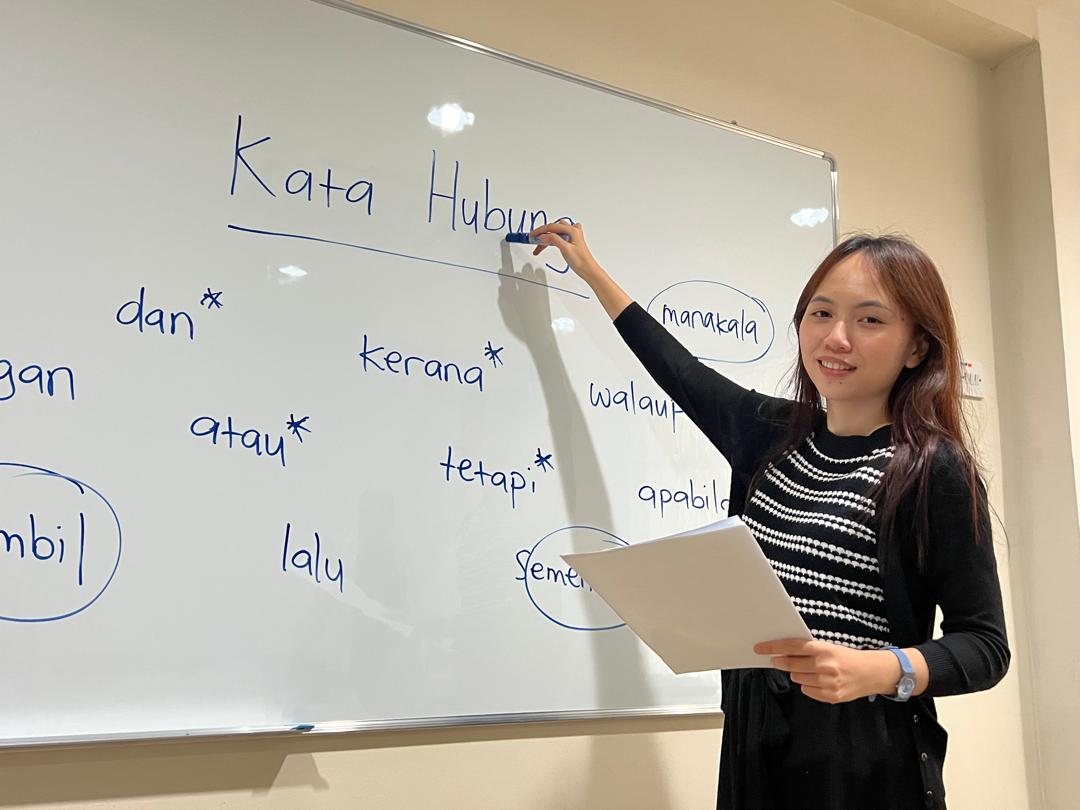 Kata Hubung
dan*
manakala
kerana*
gan
walaup
atau*
tetapi*
apabila
mbil
lalu
Semen